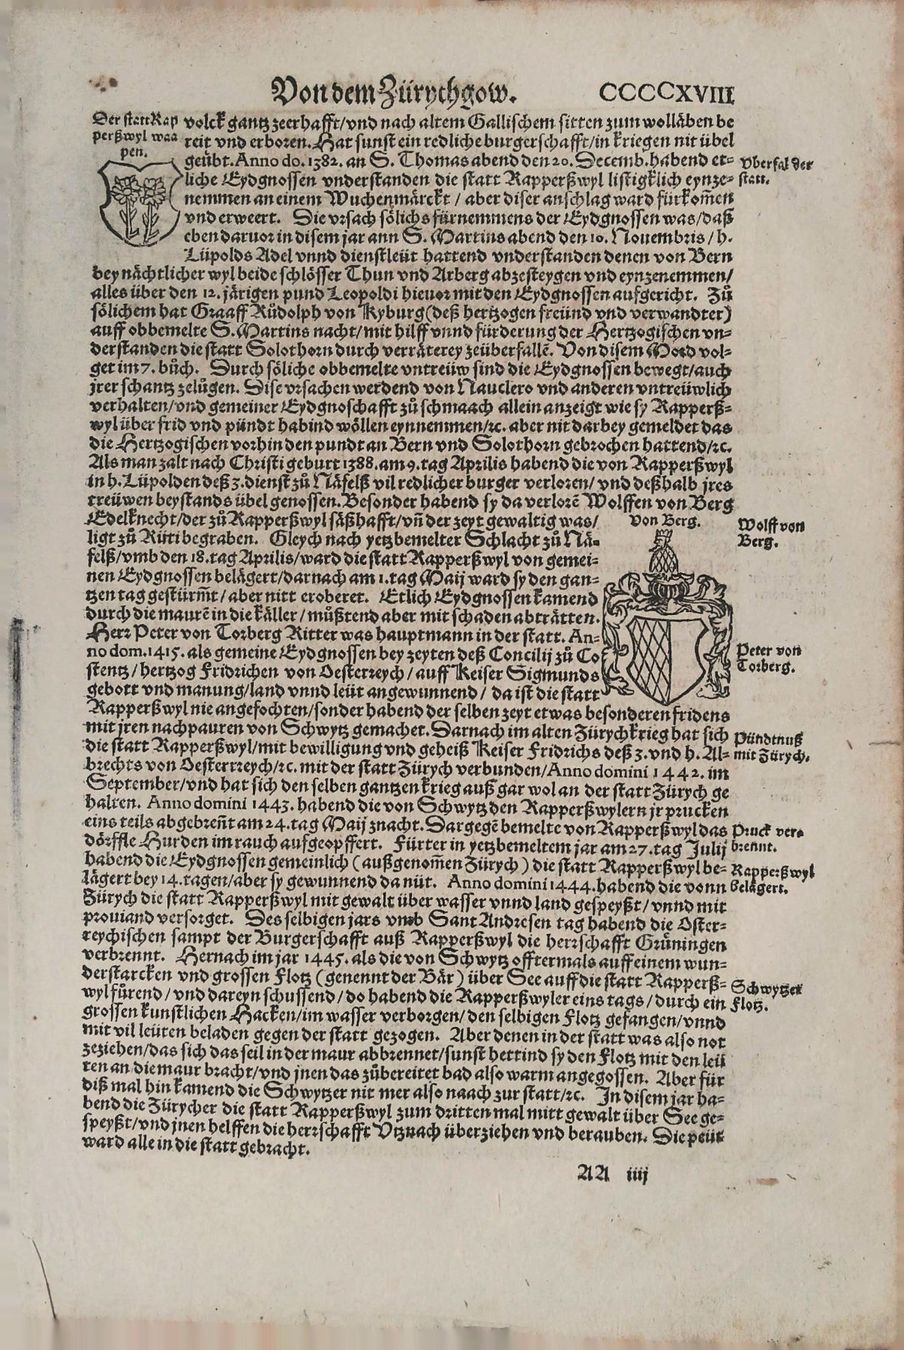 Von dem Zürychgow. CCCCCXVIII
Der statt Rap
perßwyl waa
pen.
volck gantz zeerhafft/vnd nach altem Gallischem sitten zum wolläben be
reit vnd erboren. Hat sunst ein redliche burgerschafft/in kriegen nit übel
geübt. Anno do. 1382. an S. Thomas abend den 20. Decemb. habend et-
liche Eydgnossen vnderstanden die statt Rapperßwyl listigklich eynze-
nemmen an einem Wuchenmärckt / aber diser anschlag ward fürkom̃en
vnd erweert. Die vrsach sölichs fürnemmens der Eydgnossen was/daß
eben daruor in disem jar ann S. Martins abend den 10. Nouembris / h.
Lüpolds Adel vnnd dienstleüt hattend vnderstanden denen von Bern
bey nächtlicher wyl beide schlösser Thun vnd Arberg abzesteygen vnd eynzenemmen/
alles über den 12. järigen pund Leopoldi hieuor mit den Eydgnossen aufgericht. Zů
sölichem hat Graaff Růdolph von Kyburg (deß hertzogen freünd vnd verwandter)
auff obbemelte S. Martins nacht/mit hilff vnnd fürderung der Hertzogischen vn-
derstanden die statt Solothorn durch verräterey zeüberfallē. Von disem Mord vol-
get im 7. bůch. Durch söliche obbemelte vntreüw sind die Eydgnossen bewegt/auch
jrer schantz zelůgen. Dise vrsachen werdend von Nauclero vnd anderen vntreüwlich
verhalten/vnd gemeiner Eydgnoschafft zů schmaach allein anzeigt wie sy Rapperß-
wyl über frid vnd pündt habind wöllen eynnemmen/ꝛc. aber nit darbey gemeldet das
die Hertzogischen vorhin den pundt an Bern vnd Solothorn gebrochen hattend/ꝛc.
Als man zalt nach Christi geburt 1388. am 9. tag Aprilis habend die von Rapperßwyl
in h. Lüpolden deß 3. dienst zů Näfelß vil redlicher burger verloren/ vnd deßhalb jres
treüwen beystands übel genossen. Besonder habend sy da verlorē Wolffen von Berg
Edelknecht/der zů Rapperßwyl säßhafft/vñ der zeyt gewaltig was/
ligt zů Rüti begraben. Gleych nach yetzbemelter Schlacht zů Nä-
felß/vmb den 18. tag Aprilis/ward die statt Rapperßwyl von gemei-
nen Eydgnossen belägert/darnach am 1. tag Maij ward sy den gan-
tzen tag gestürm̃t/aber nitt eroberet. Etlich Eydgnossen kamend
durch die maurē in die käller / můßtend aber mit schaden abträtten.
Herr Peter von Torberg Ritter was hauptmann in der statt. An-
no dom. 1415. als gemeine Eydgnossen bey zeyten deß Concilij zů Co
stentz/hertzog Fridrichen von Oesterreych/auff Keiser Sigmunds
gebott vnd manung/land vnnd leüt angewunnend / da ist die statt
Rapperßwyl nie angefochten/sonder habend der selben zeyt etwas besonderen fridens
mit jren nachpauren von Schwytz gemachet. Darnach im alten Zürychkrieg hat sich
die statt Rapperßwyl/mit bewilligung vnd geheiß Keiser Fridrichs deß 3. vnd h. Al-
brechts von Oesterreych/ꝛc. mit der statt Zürych verbunden/Anno domini 1442. im
September/vnd hat sich den selben gantzen krieg auß gar wol an der statt Zürych ge
halten. Anno domini 1443. habend die von Schwytz den Rapperßwylern jr prucken
eins teils abgebreñt am 24. tag Maij znacht. Dargegē bemelte von Rapperßwyl das
dörffle Hurden im rauch aufgeopffert. Fürter in yetzbemeltem jar am 27. tag Julij
habend die Eydgnossen gemeinlich (außgenom̃en Zürych) die statt Rapperßwyl be-
lägert bey 14. tagen/aber sy gewunnend da nüt. Anno domini 1444. habend die vonn
Zürych die statt Rapperßwyl mit gewalt über wasser vnnd land gespeyßt/vnnd mit
prouiand versorget. Des selbigen jars vmb Sant Andresen tag habend die Oster-
reychischen sampt der Burgerschafft auß Rapperßwyl die herrschafft Grüningen
verbrennt. Hernach im jar 1445. als die von Schwytz offtermals auff einem wun-
derstarcken vnd grossen Flotz (genennt der Bär) über See auff die statt Rapperß-
wyl fůrend/vnd dareyn schussend/do habend die Rapperßwyler eins tags/durch ein
grossen kunstlichen Hacken/im wasser verborgen/den selbigen Flotz gefangen/vnnd
mit vil leüten beladen gegen der statt gezogen. Aber denen in der statt was also not
zeziehen/das sich das seil in der maur abbrennet/sunst hettind sy den Flotz mit den leü
ten an die maur bracht/vnd jnen das zůbereitet bad also warm angegossen. Aber für
diß mal hin kamend die Schwytzer nit mer also naach zur statt/ꝛc. In disem jar ha-
bend die Zürycher die statt Rapperßwyl zum dritten mal mitt gewalt über See ge-
speyßt/vnd jnen helffen die herrschafft Vtznach überziehen vnd berauben. Die peüt
ward alle in die statt gebracht.
AA iiij
Vberfal der
statt.
Von Berg.
Wolff von
Berg.
Peter von
Torberg.
Pündtnuß
mit Zürych.
Pruck ver-
brennt.
Rapperßwyl
belägert.
Schwytzer
Flotz.